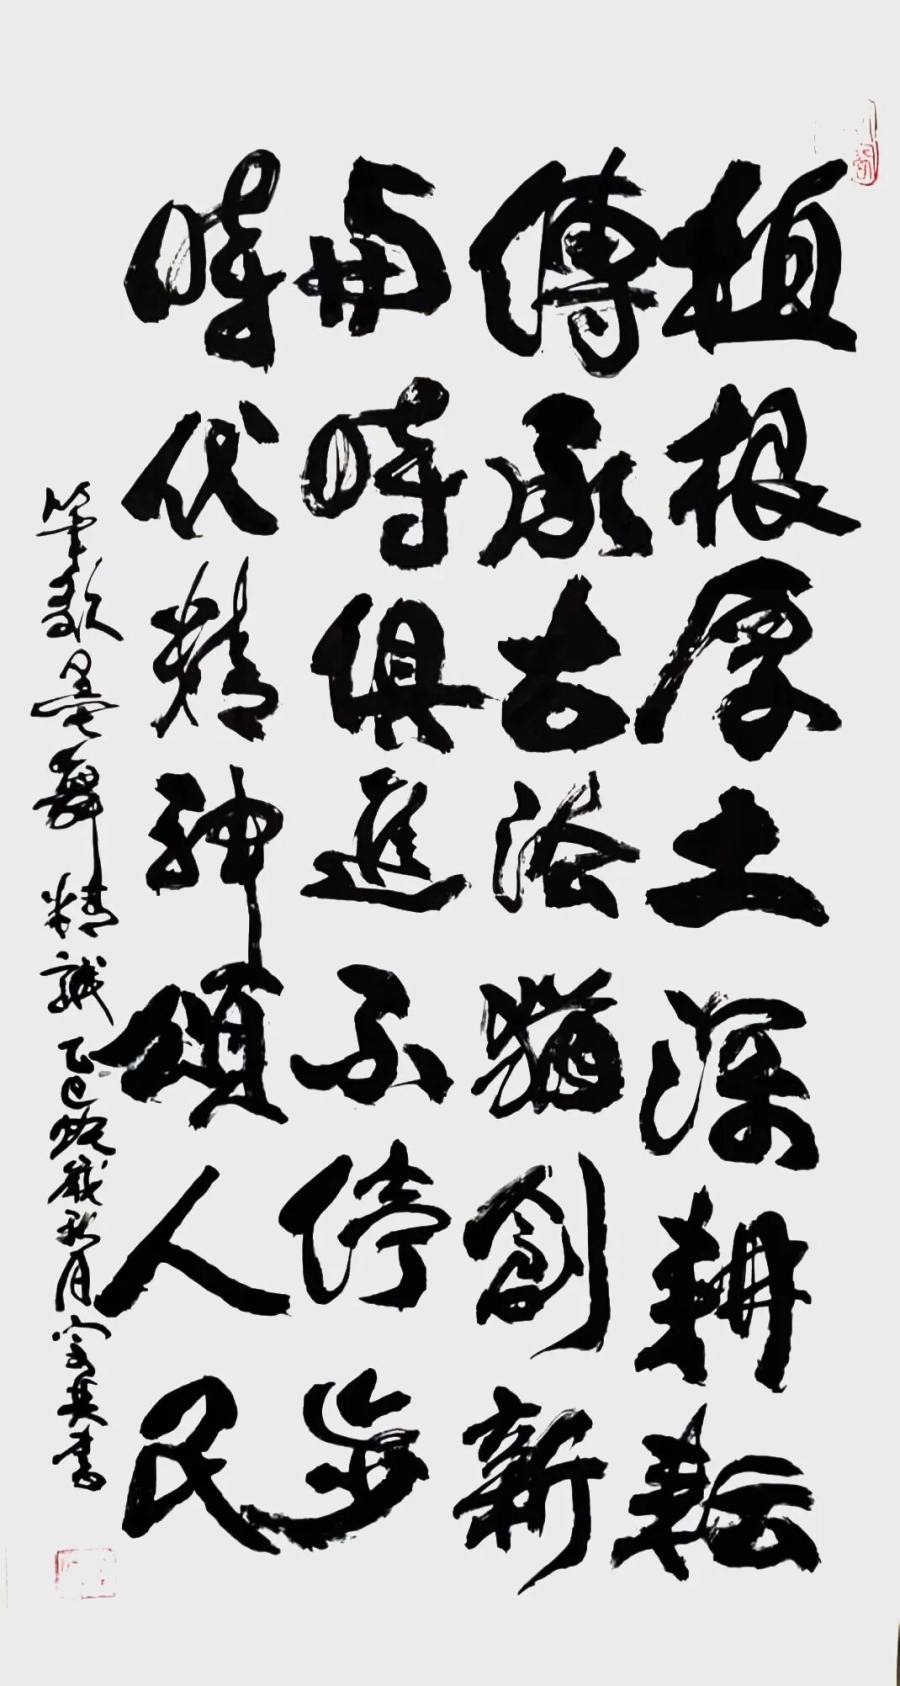 植根厚土深耕耘
傳承古法猶創新
與時俱進不停步
時代精神頌人民
筆歌墨舞精誠乙巳蛇歲秋月書